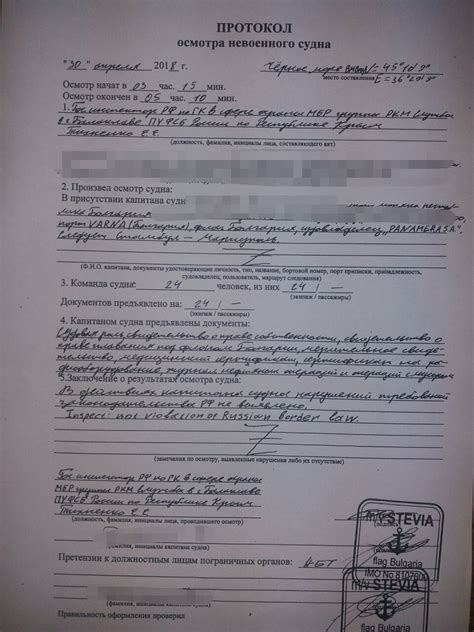 ПРОТОКОЛ
осмотра невоенного судна
"30" апреля 2018 г.
Чёрное море 45°10'
место составления 36°
Осмотр начат в 03 час. 15 мин.
Осмотр окончен в 05 час. 10 мин.
1. Гос. инспектор РФ по ГК в сфере охраны МБР группы РКМ Службы
в г. Балаклаве ПУФСБ России по Республике Крым
Тихненко Е.Е.
(должность, фамилия, инициалы лица, составляющего акт)
2. Произвел осмотр судна:
В присутствии капитана судна
Болгария
порт VARNA (Болгария), флаг Болгария, судовладелец "PANAMERA S.A."
Следует Стамбул - Мариуполь
(Ф.И.О. капитана, документы удостоверяющие личность, тип, название, бортовой номер, порт приписки, принадлежность,
судовладелец, пользователь, маршрут следования)
3. Команда судна: 24 человек, из них 24 / -
(экипаж / пассажиры)
Документов предъявлено на 24 / -
(экипаж / пассажиры)
4. Капитаном судна предъявлены документы:
Судовая роль, свидетельство о праве собственности, свидетельство о
праве плавания под флагом Болгарии, мерительное свиде-
тельство, медицинский сертификат, на ра-
диооборудование, журнал нефтяных операций и операций с мусором
5.Заключение о результатах осмотра судна:
В действиях капитана судна нарушений требований
законодательства РФ не выявлено.
Inspect: not violation of Russian border law.
(замечания по осмотру, выявленные нарушения либо их отсутствие)
Гос. инспектор РФ по ГК в сфере охраны
МБР группы РКМ Службы в г. Балаклаве
ПУФСБ России по Республике Крым
Тихненко Е.Е.
(должность, фамилия, инициалы, проводившего осмотр)
m/v STEVIA
flag Bulgaria
Претензии к должностным лицам пограничных органов: нет
IMO No
m/v STEVIA
(фамилия, инициалы капитана)
flag Bulgaria
Правильность оформления проверил